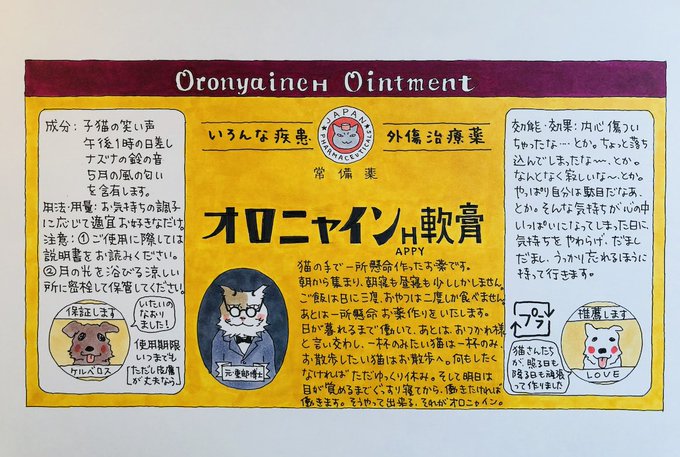 Oronyaine H Ointment
成分：子猫の笑い声
午後1時の日差し
ナズナの鈴の音
5月の風の匂い
を含有します。
用法・用量：お気持ちの調子
に応じて適宜お好きなだけ。
注意：①ご使用に際しては
説明書をお読みください。
②月の光を浴びる涼しい
所に密栓して保管してください。
保証します
ケルベロス
いたいの
なおり
ました！
使用期限
いつまでも
[ただし皮膚
が丈夫なら]
いろんな疾患
JAPAN
PHARMACEUTICALS
外傷治療薬
常備薬
オロニャインH軟膏
APPY
元・重郎博士
猫の手で一所懸命作ったお薬です。
朝から集まり、朝寝も昼寝も少ししかしません。
ご飯は日に三度、おやつは二度しか食べません。
あとは一所懸命お薬作りをいたします。
日が暮れるまで働いて、あとは、おつかれ様
と言い交わし、一杯のみたい猫は一杯のみ、
お散歩したい猫はお散歩へ。何もしたく
なければただゆっくり休み。そして明日は
目が覚めるまでぐっすり寝てから、働きたければ
働きます。そうやって出来る、それがオロニャイン。
効能・効果：内心傷つい
ちゃったな…とか。ちょっと落ち
込んでしまったな〜、とか。
なんとなく寂しいな〜、とか。
やっぱり自分は駄目だなあ、
とか。そんな気持ちが心の中
いっぱいになってしまった日に、
気持ちをやわらげ、だまし
だまし、うっかり忘れるほうに
持って行きます。
プラ
推薦します
LOVE
猫さんたち
が照る日も
降る日も頑張
って作りました